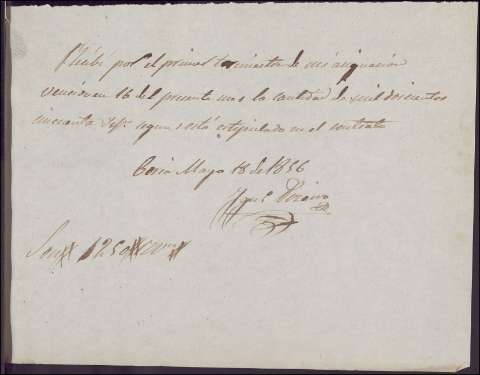 Recibí por el primer trimestre de mi asignacion
vencido en 16 del presente mes la cantidad de mil doscientos
cincuenta rs vn. segun está estipulado en el contrato
Coria Mayo 18 de 1856
Son 1250 rs vn